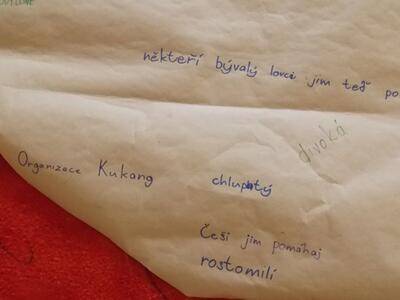 někteří bývalý lovci jim teď po
divoká
Organizace Kukang
chlupatý
Češi jim pomáhaj
rostomilí